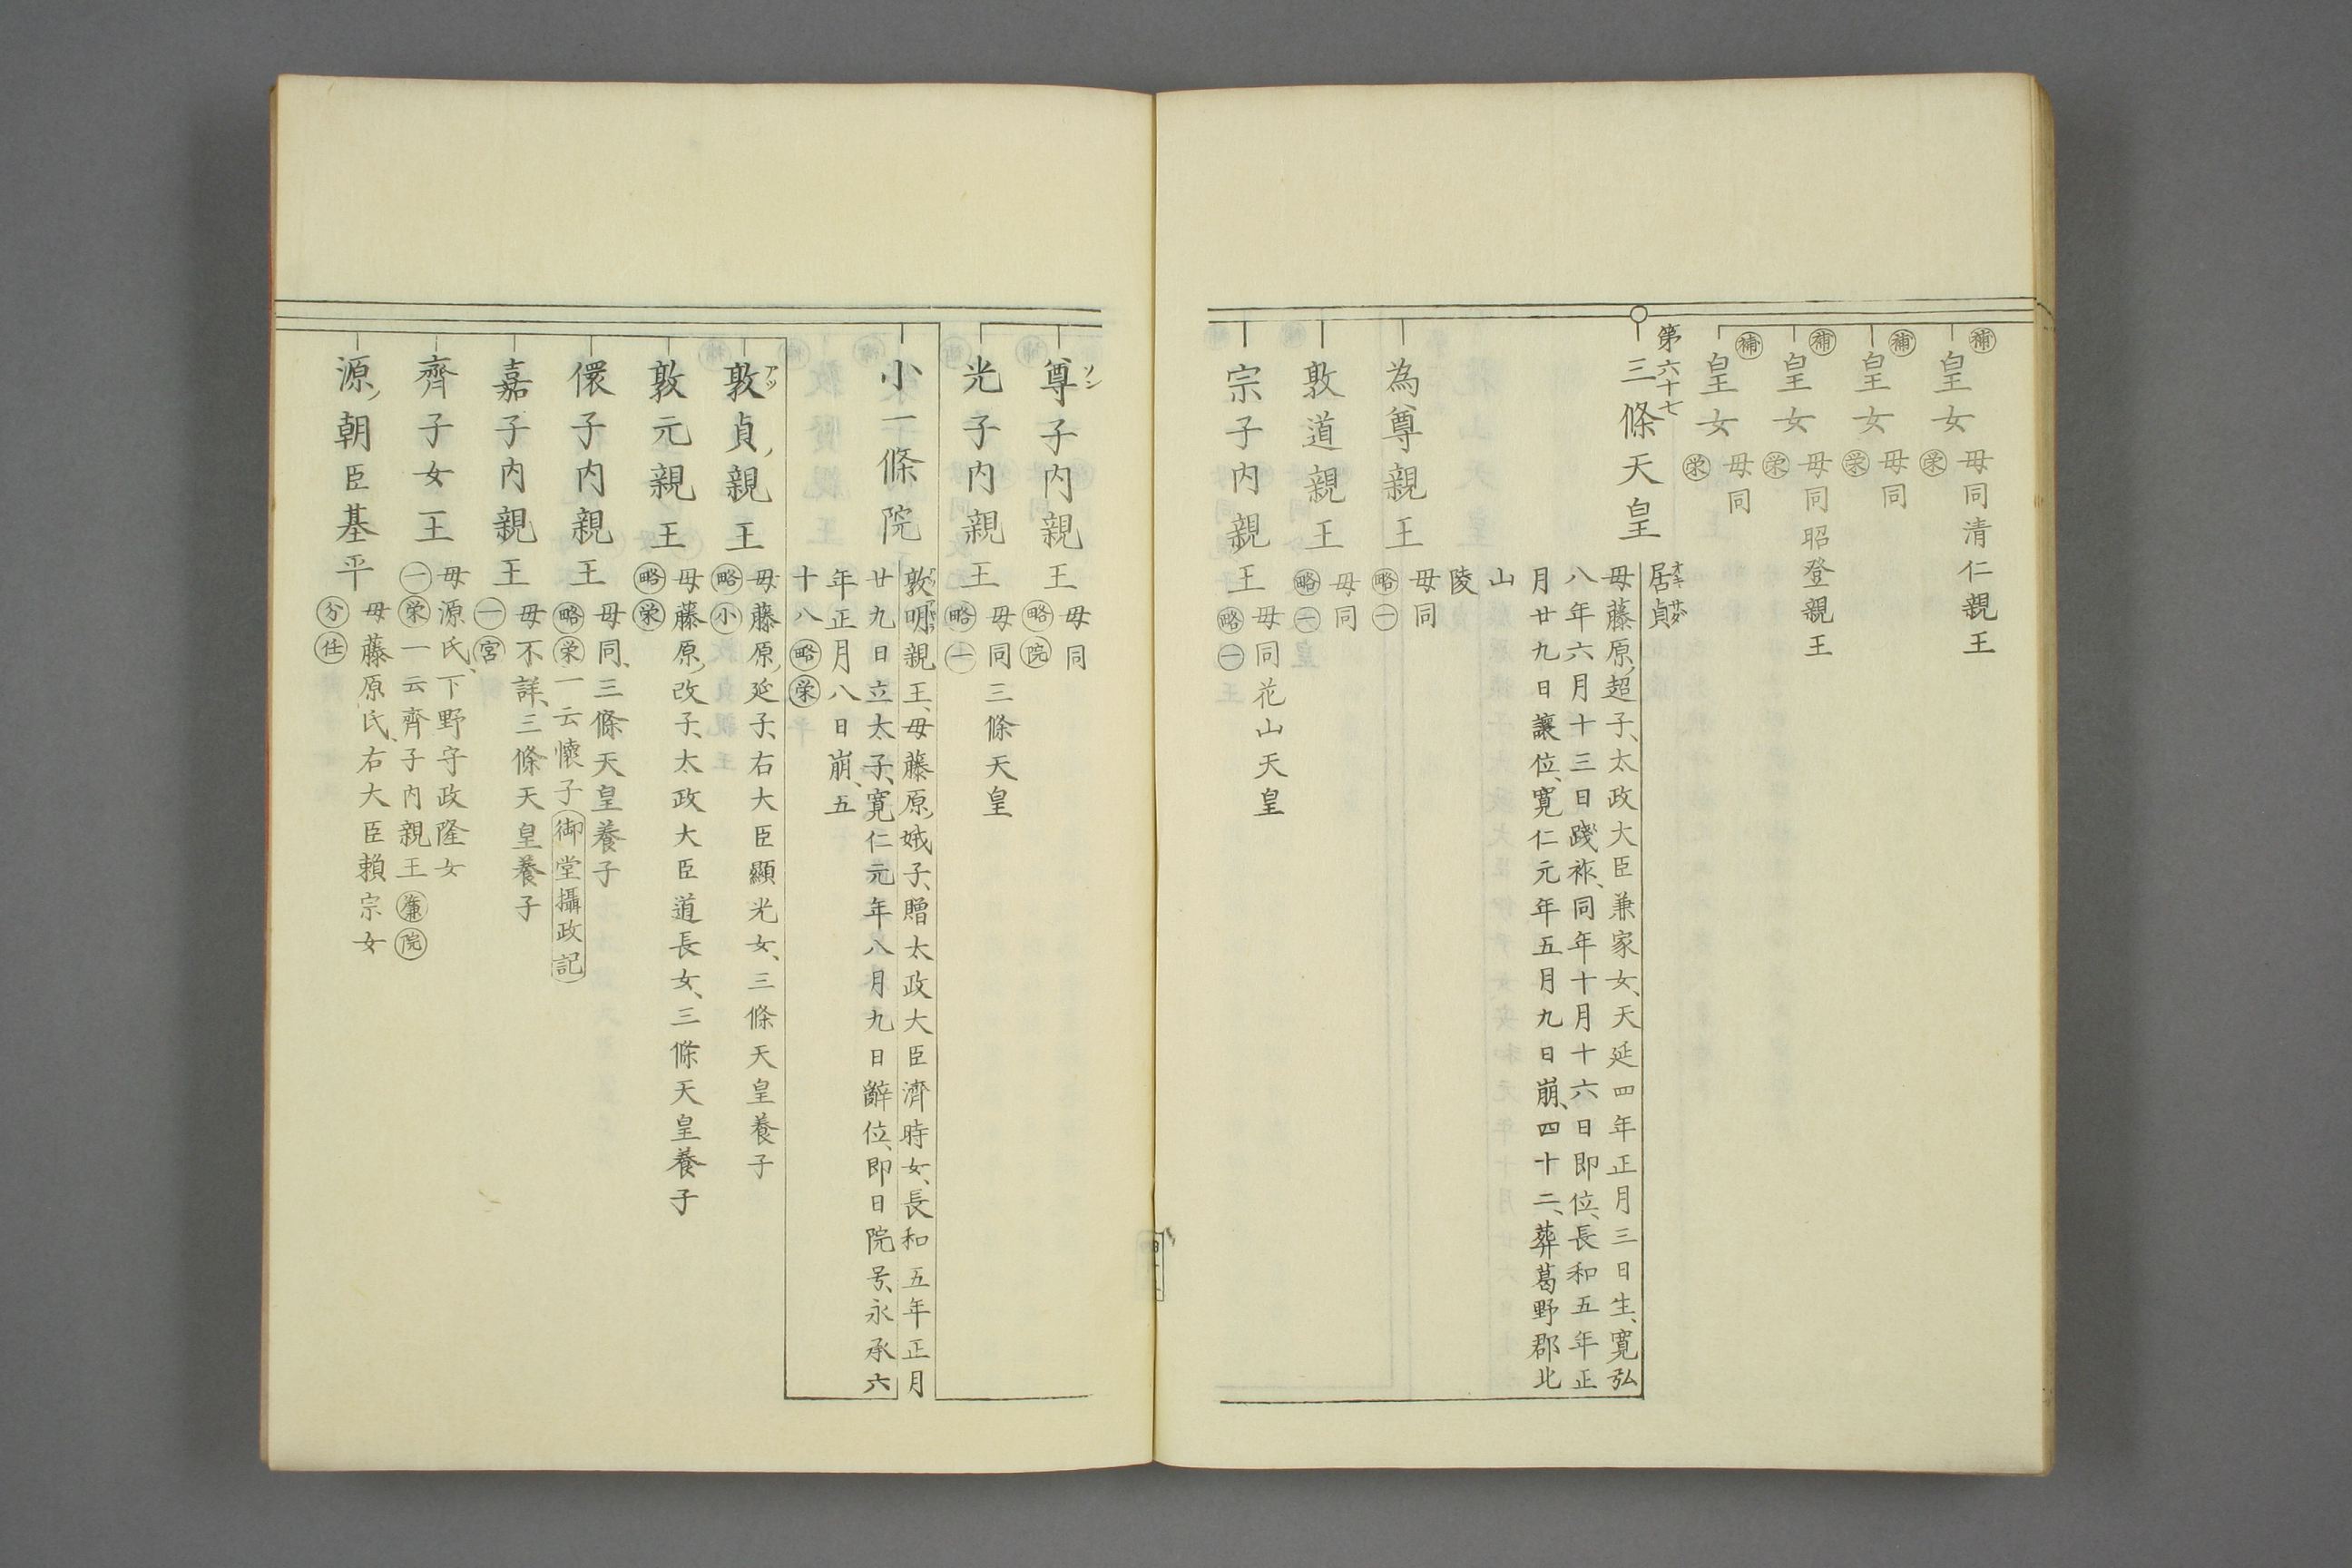 ㊟補
皇女
母同清仁親王
栄
補
皇女
母同
栄
補
皇女
母同昭登親王
栄
補
皇女
母同
栄
第六十七
三條天皇
居貞
オキ サダ
母藤原超子、太政大臣兼家女、天延四年正月三日生、寛弘
八年六月十三日踐祚、同年十月十六日即位、長和五年正
月廿九日讓位、寛仁元年五月九日崩、四十二、葬葛野郡北
山
陵
為尊親王
母同
略一
敦道親王
母同
略一
宗子内親王
母同花山天皇
略一
尊子内親王
ソン
母同
略院
光子内親王
母同三條天皇
略一
小一條院
敦明親王、母藤原娍子、贈太政大臣濟時女、長和五年正月
廿九日立太子、寛仁元年八月九日辭位、即日院号、永承六
年正月八日崩、五
十八略栄
敦貞親王
アツ
母藤原延子、右大臣顯光女、三條天皇養子
略小
敦元親王
母藤原改子、太政大臣道長女、三條天皇養子
略栄
儇子内親王
母同、三條天皇養子
略栄一云懷子御堂攝政記
嘉子内親王
母不詳、三條天皇養子
一宮
齊子女王
母源氏、下野守政隆女
一栄一云齊子内親王簾院
源朝臣基平
母藤原氏、右大臣賴宗女
分任